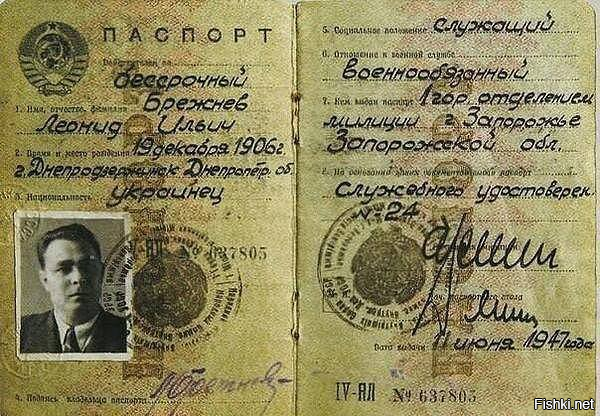 ПАСПОРТ
Действителен по
бессрочный
Брежнев
1. Имя, отчество, фамилия
Леонид Ильич
2. Время и место рождения 19 декабря 1906 г.
г. Днепродзержинск Днепропетр. об.
3. Национальность украинец
IV-ЯЛ № 637805
4. Подпись владельца паспорта
5. Социальное положение служащий
6. Отношение к военной службе
военнообязанный
7. Кем выдан паспорт 1 гор. отделением
милиции г. Запорожье
Запорожской обл.
8. На основании каких документов выдан паспорт
служебного удостоверен.
№-24
Нач. паспортного стола
Дата выдачи 11 июня 1947 года
IV-ЯЛ № 637805
Fishki.net